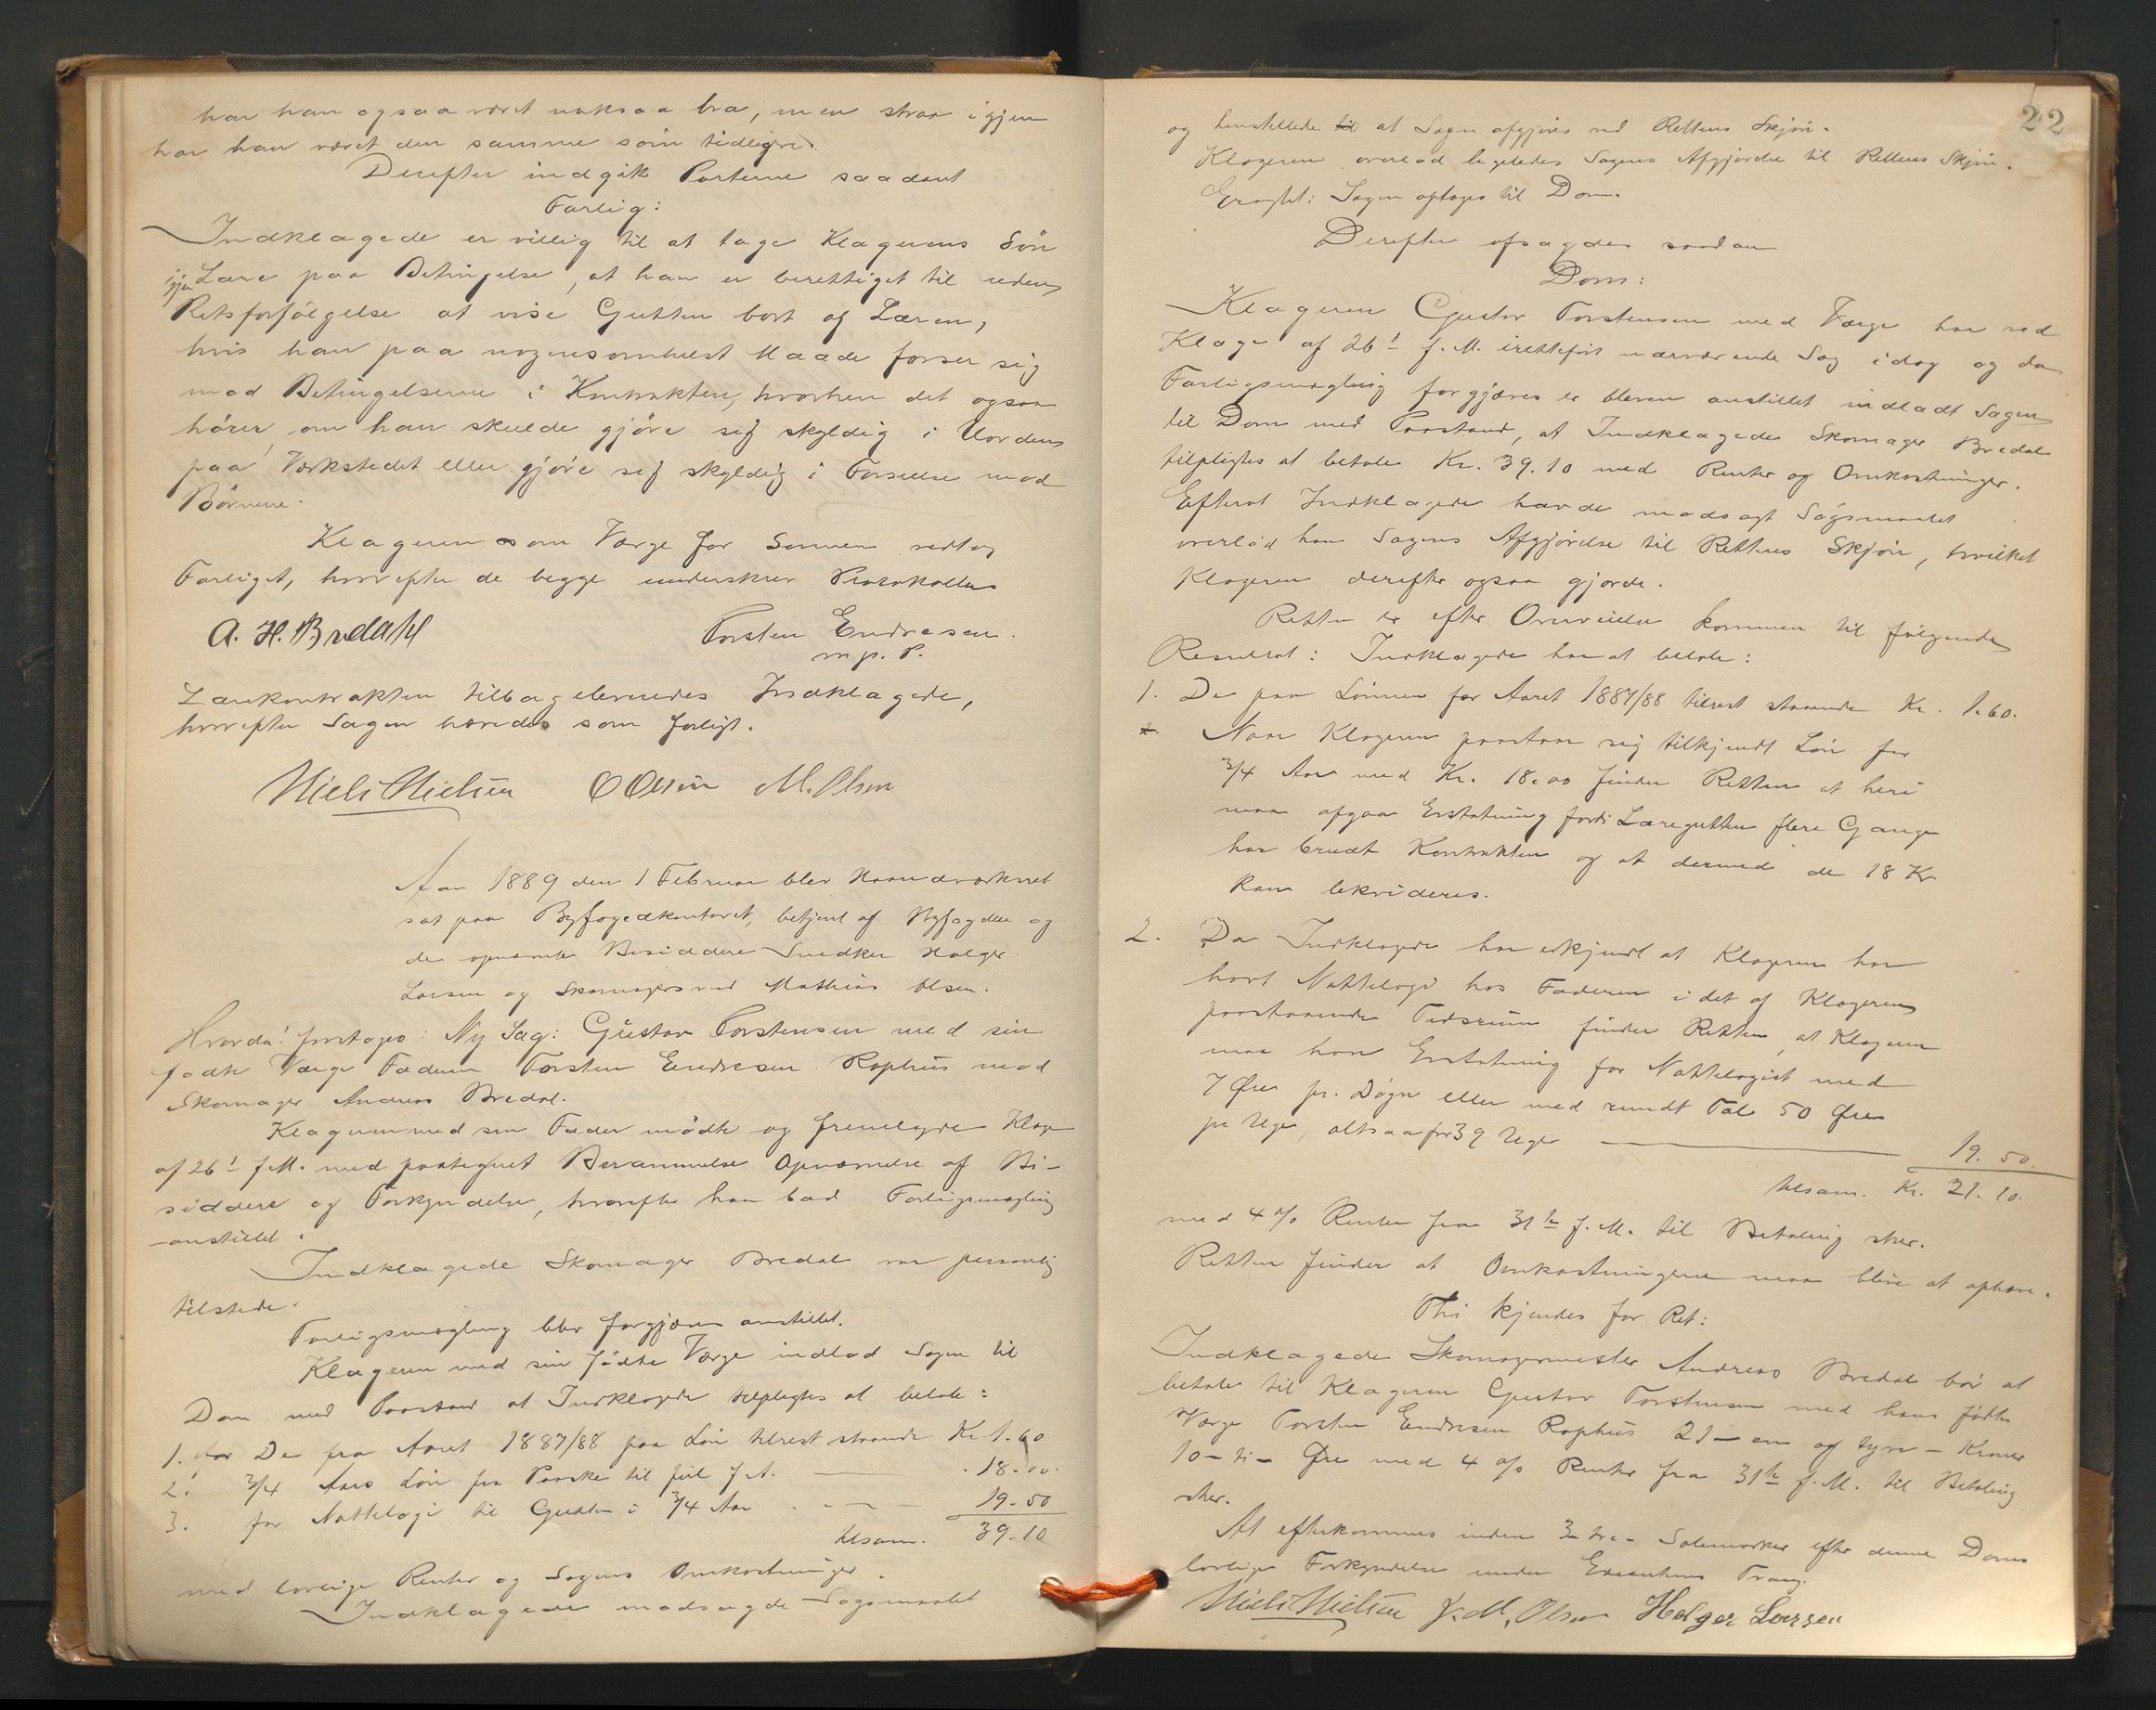 har han ogsaa været noksaa bra, men strax igjen
har han været den samme som tidligere.
Derefter indgik Parterne saadant
Forlig:
Indklagede er villig til at tage Klagerens Søn
igjen Lære paa Betingelse, at han er berettiget til uden
Retsforfølgelse at vise Gutten bort af Læren,
hvis han paa nogensomhelst Maade forser sig
mod Betingelserne i Kontrakten, hvorhen det ogsaa
hører, om han skulde gjøre sig skyldig i Uorden
paa Værkstedet eller gjøre sig skyldig i Forseelse mod
Børnene.
Klageren som Værge for Sønnen vedtog
Forliget, hvorefter de begge underskrev Protokollen
A. H. Bredahl Torsten Endresen.
m. p. P.
Lærekontrakten tilbageleveredes Indklagede,
hvorefter Sagen hævedes som forligt.
Niels Nielsen O Olsen M. Olsen
Aar 1889 den 1 Februar blev Haandværksret
sat paa Byfogedkontoret, betjent af Byfogden og
de opnævnte Bisiddere Snedker Holger
Larsen og Skomagersvend Mathias Olsen.
Hvorda! foretoges: Ny Sag: Gustav Torstensen med sin
fødte Værge Faderen Torsten Endresen Raphus mod
Skomager Andreas Bredal.
Klageren med sin Fader mødte og fremlagde Klage
af 26de f. M. med paategnet Berammelse Opnævnelse af Bi-
siddere og Forkyndelse, hvorefter han bad Forligsmægling
anstillet.
Indklagede Skomager Bredal var personlig
tilstede.
Forligsmægling blev forgjæves anstillet.
Klageren med sin fødte Værge indlod Sagen til
Dom med Paastand at Indklagede tilpligtes at betale:
1. for De fra Aaret 1887/88 paa Løn tilrest staaende Kr. 1.60
2. 3/4 Aars Løn fra Paaske til Jul f. A. — - 18.00.
3. for Nattelogi til Gutten i 3/4 Aar - — 19.50
tilsam. 39.10
med lovlige Renter og Sagens Omkostninger.
Indklagede modsagde Søgsmaalet
22
og henstillede til at Sagen afgjøres ved Rettens Skjøn.
Klageren overlod ligeledes Sagens Afgjørelse til Rettens Skjøn.
Eragtet: Sagen optages til Dom.
Derefter afsagdes saadan
Dom:
Klageren Gustav Torstensen med Værge har ved
Klage af 26de f. M. iretteført nærværende Sag idag og da
Forligsmægling forgjæves er bleven anstillet indladt Sagen
til Dom med Paastand, at Indklagede Skomager Bredal
tilpligtes at betale Kr. 39.10 med Renter og Omkostninger.
Efterat Indklagede havde modsagt Søgsmaalet
overlod han Sagens Afgjørelse til Rettens Skjøn, hvilket
Klageren derefter ogsaa gjorde.
Retten er efter Overveielse kommen til følgende
Resultat: Indklagede har at betale:
1. De paa Lønnen for Aaret 1887/88 tilrest staaende Kr. 1.60.
Naar Klageren paastaar sig tilkjendt Løn for
3/4 Aar med Kr. 18.00 finder Retten at heri
maa afgaa Erstatning fordi Læregutten flere Gange
har brudt Kontrakten og at dermed de 18 Kr
kan likvideres.
2. Da Indklagede har erkjendt at Klageren har
havt Nattelogi hos Faderen i det af Klageren
paastaaende Tidsrum finder Retten, at Klageren
maa have Erstatning for Nattelogiet med
7 Øre pr. Døgn eller med rundt Tal 50 Øre
pr Uge, altsaa for 39 Uger — 19.50.
tilsam. Kr. 21.10.
med 4 % Renter fra 31te f. M. til Betaling sker.
Retten finder at Omkostningerne maa blive at ophæve.
Thi kjendes for Ret:
Indklagede Skomagermester Andreas Bredal bør at
betale til Klageren Gustav Torstensen med hans fødte
Værge Torsten Endresen Raphus 21 - en og tyve - Kroner
10 - ti - Øre med 4 % Renter fra 31te f. M. til Betaling
sker.
At efterkommes inden 3 - tre - Solemærker efter denne Doms
lovlige Forkyndelse under Executions Tvang.
Niels Nielsen J. M. Olsen Holger Larsen